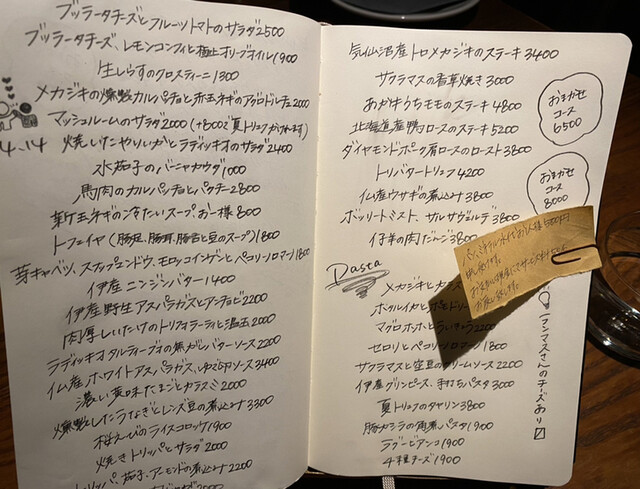 ブッラータチーズとフルーツトマトのサラダ2500
ブッラータチーズ、レモンコンフィと極上オリーブオイル1900
生しらすのクロスティーニ1300
メカジキの燻製カルパッチョと赤玉ネギのアグロドルチェ2000
4.14
マッシュルームのサラダ2000(+800で真トリュフかけれます)
焼いたやりいかとラディッキオのサラダ2400
水茄子のバーニャカウダ1000
馬肉のカルパッチョとパテ 2800
新玉ネギのつめたいスープ、お一様800
トフェイヤ(豚足、豚耳、豚舌と豆のスープ)1800
芽キャベツ、スナップエンドウ、モロッコインゲンとペコリーノロマーノ1800
伊産ニンジンバター1400
伊産野生アスパラガスとアンチョビ2200
肉厚しいたけのトリフォラーティと温玉2000
ラディッキオタルティーブォの焦がしバターソース2200
仏産ホワイトアスパラガス、ゆで卵ソース3400
濃い黄味たまごとカラスミ2000
燻製したうなぎとレンズ豆の煮込み3300
桜えびのライスコロッケ1900
焼きトリッパとサラダ2000
トリッパ、茄子、アーモンドの煮込み2200
2000
気仙沼産トロメカジキのステーキ3400
サクラマスの香草焼き3000
あか牛うちモモのステーキ4800
北海道産鴨ロースのステーキ5200
ダイヤモンドポーク肩ロースのロースト3800
トリバタートリュフ4200
仏産ウサギの煮込み3800
ボッリートミスト、サルサヴェルデ3800
仔羊の肉だんご3800
おまかせ
コース
6500
おまかせ
コース
8000
Pasta
メカジキとカラス
ホタルイカと
マグロホホとらっきょう2200
セロリとペコリーノロマーノ1800
サクラマスと空豆のクリームソース2200
伊産グリンピース、手打ちパスタ3000
真トリュフのタヤリン3800
豚カシラの角煮パスタ1900
ラグービアンコ1900
4種チーズ1900
パン、ミネラルウォーターでお1人様500円
申し受けます。
お気軽に
お戻し致します。
ワンマスさんのチーズあり